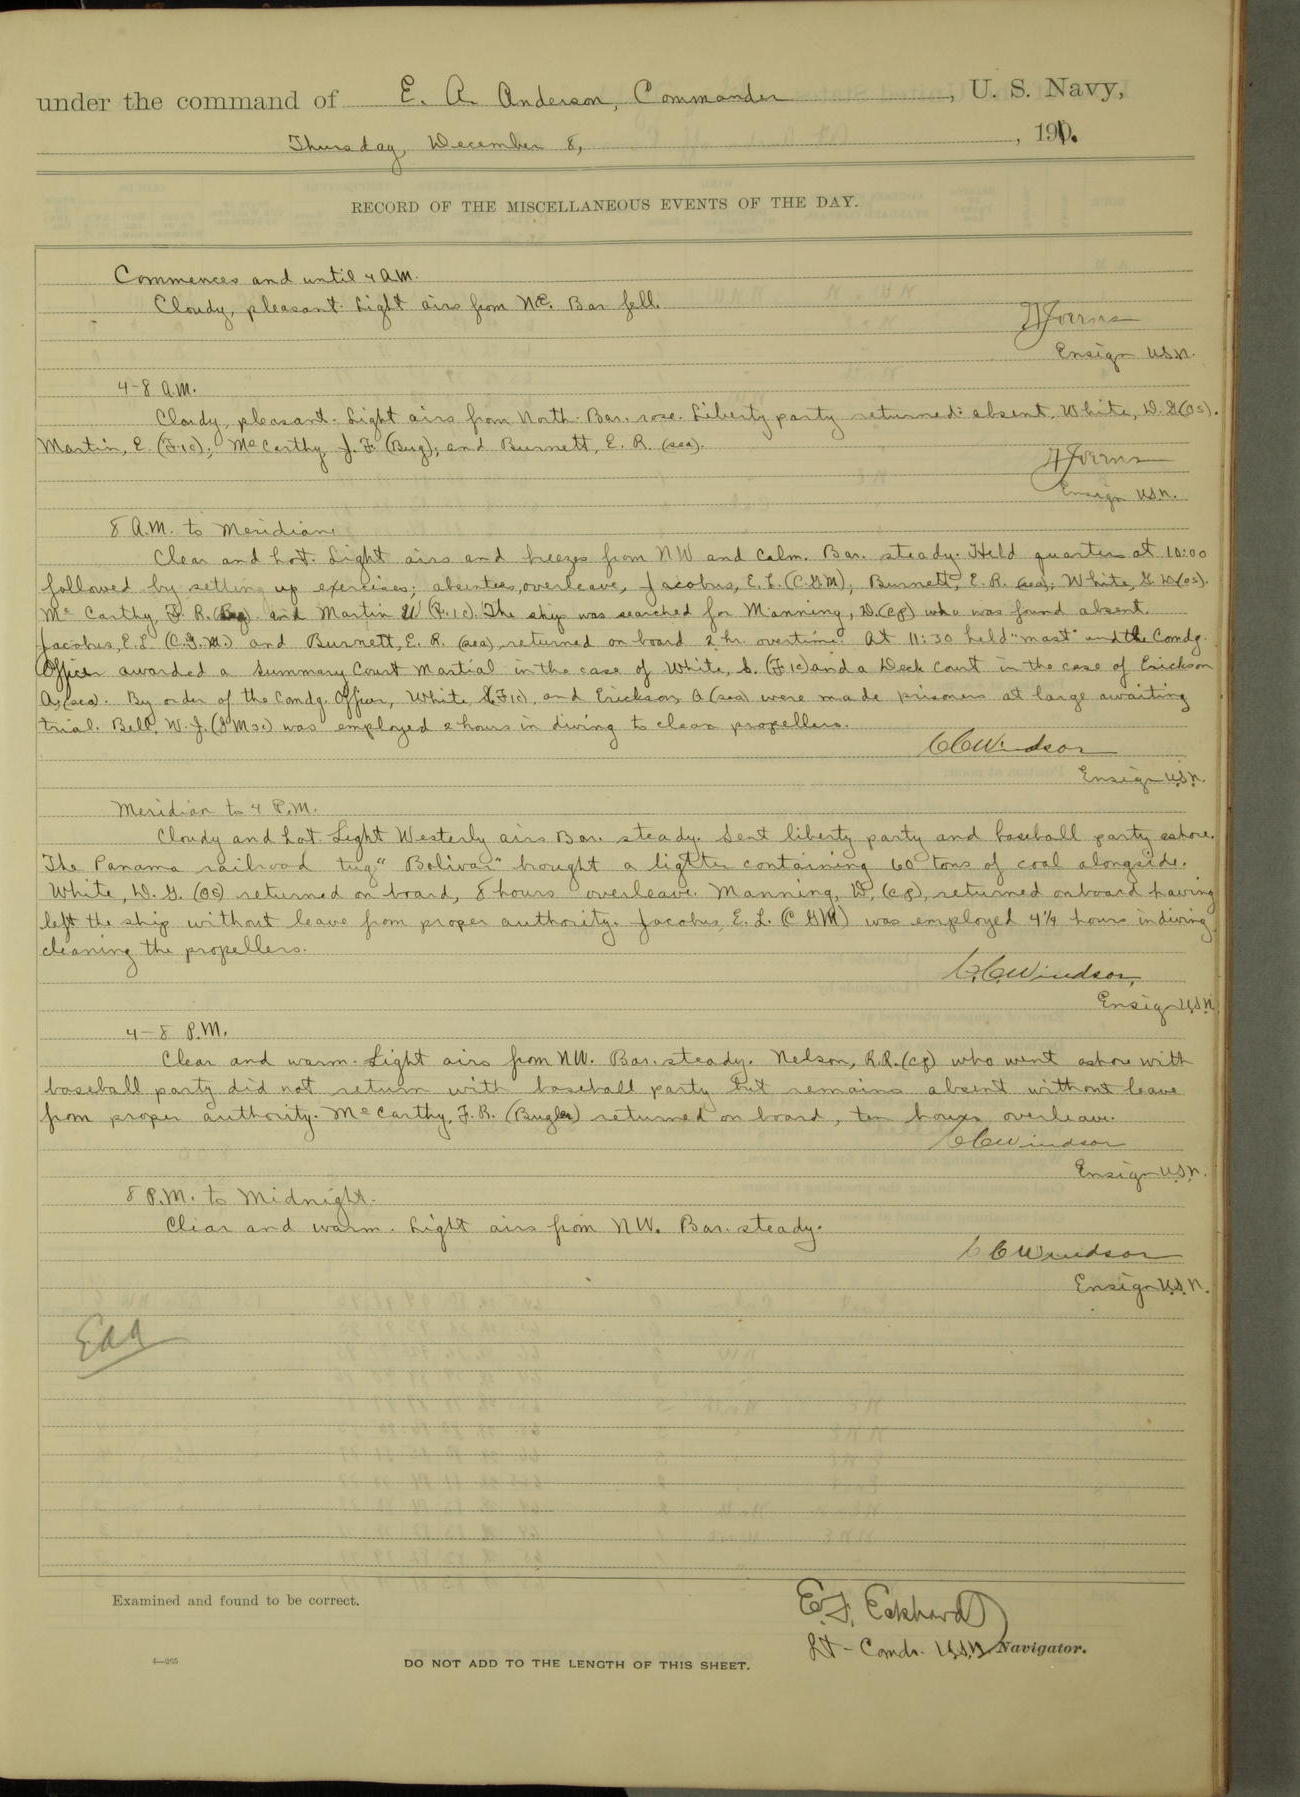 under the command of E. A. Anderson, Commander, U. S. Navy,
Thursday, December 8, 1910.
RECORD OF THE MISCELLANEOUS EVENTS OF THE DAY.
Commences and until 4 A.M.
Cloudy, pleasant. Light airs from NE. Bar fell.
Ensign U.S.N.
4-8 A.M.
Cloudy, pleasant. Light airs from North. Bar. rose. Liberty party returned: absent, White, D. G. (OS).
Martin, E. (F.1c); McCarthy J. F. (Bug); and Burnett, E. R. (sea).
Ensign U.S.N.
8 A.M. to Meridian
Clear and hot. Light airs and breezes from NW and calm. Bar. steady. Held quarters at 10:00
followed by setting up exercises; absentees, overleave, Jacobus, E. L. (C.G.M); Burnett, E. R. (sea); White, G. D. (OS).
Mc Carthy, F. R. (Bug). and Martin (F.1c). The ship was searched for Manning, D. (CP) who was found absent.
Jacobus, E. L. (C.G.M.) and Burnett, E. R. (sea) returned on board 2 hr. overtime. At 11:30 held "mast" and the Comdg.
Officer awarded a Summary Court Martial in the case of White, S. (F1c) and a Deck Court in the case of Erickson
A, (sea. By order of the Comdg. Officer, White, S (F1c), and Erickson, A (sea) were made prisoners at large awaiting
trial. Bell, W. J. (GM3c) was employed 2 hours in diving to clean propellers.
CCWindsor
Ensign U.S.N.
Meridian to 4 P.M.
Cloudy and hot. Light Westerly airs. Bar. steady. Sent liberty party and baseball party ashore.
The Panama railroad tug "Bolivar" brought a lighter containing 60 tons of coal alongside.
White, D. G. (OS) returned on board, 8 hours overleave. Manning, D, (CP), returned onboard having
left the ship without leave from proper authority. Jacobus, E. L. (C GM) was employed 4 1/4 hours in diving
cleaning the propellers.
C.C.Windsor,
Ensign U.S.N.
4-8 P.M.
Clear and warm. Light airs from NW. Bar. steady. Nelson, R.R. (CP) who went ashore with
baseball party did not return with baseball party but remains absent without leave
from proper authority. McCarthy, F. R. (Bugler) returned on board, ten hours overleave.
CCWindsor
Ensign U.S.N.
8 P.M. to Midnight.
Clear and warm. Light airs from NW. Bar. steady.
CCWindsor
Ensign U.S.N.
EAA
Examined and found to be correct.
E. F. Eckhardt
Lt-Comdr. U.S.N. Navigator.
DO NOT ADD TO THE LENGTH OF THIS SHEET.